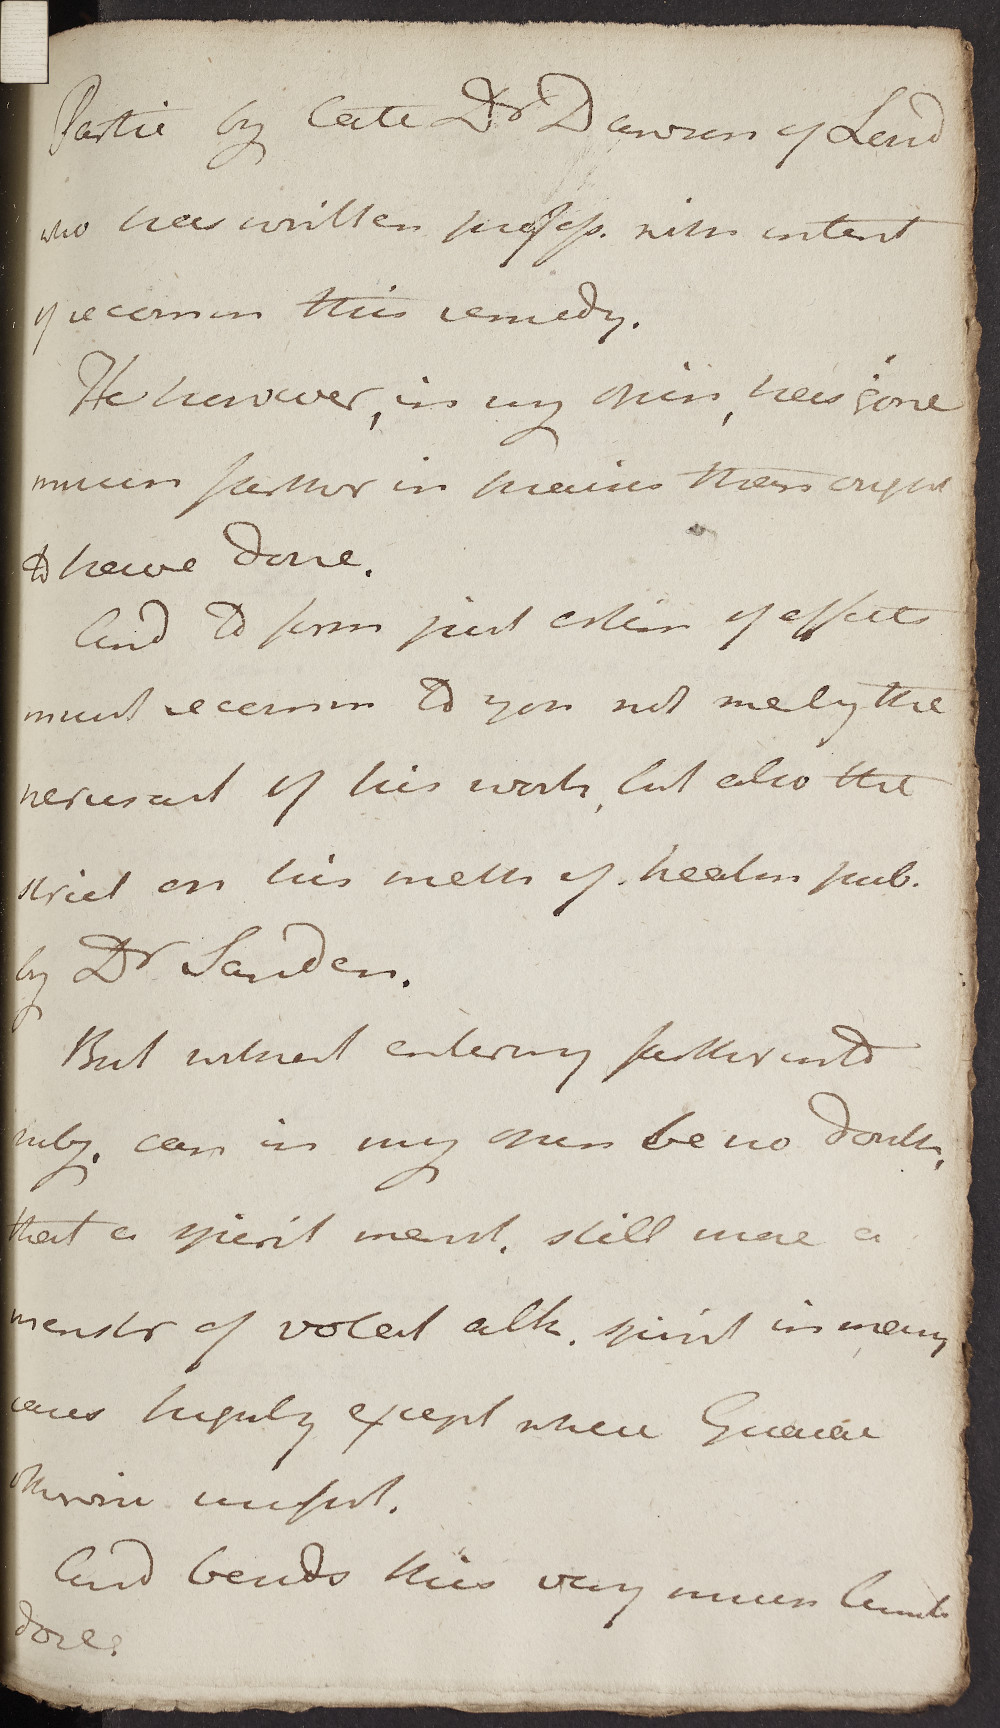 Partic by late Dr Dawson of Lond
who has written profess. with intent
of recomm this remedy.
He however, in my opin, has gone
much farther in praises than ought
to have done.
And to form just estim of effects
must recomm to you not merely the
perusal of his work, but also the
strict on his meth of healin pub.
by Dr Sanden.
But without entering farther into
subj. can in my opin be no doubt,
that a spirit menst. still more a
menstr of volat alk. spirit in many
cases highly except when Guaiac
otherwise useful.
And bends this very much limits
dose.